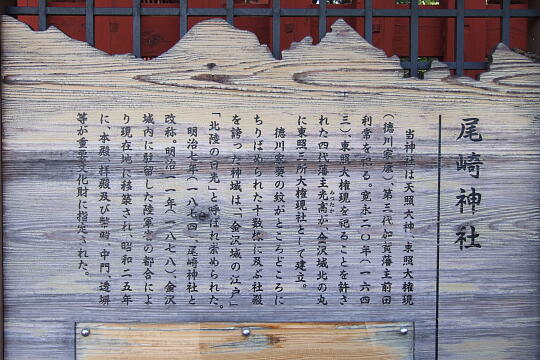 尾崎神社
当神社は天照大神、東照大権現
(徳川家康)、第三代加賀藩主前田
利常を祀る。寛永二〇年(一六四
三)、東照大権現を祀ることを許さ
れた四代藩主光高が、金沢城北の丸
みつたか
に東照三所大権現社として建立。
徳川家葵の紋がところどころに
ちりばめられた十数棟に及ぶ社殿
を誇った神域は、「金沢城の江戸」
「北陸の日光」と呼ばれ崇められた。
明治七年(一八七四)、尾崎神社と
改称。明治一一年(一八七八)、金沢
城内に駐留した陸軍省の都合によ
り現在地に移築され、昭和二五年
に、本殿、拝殿及び幣殿、中門、透塀
等が重要文化財に指定された。